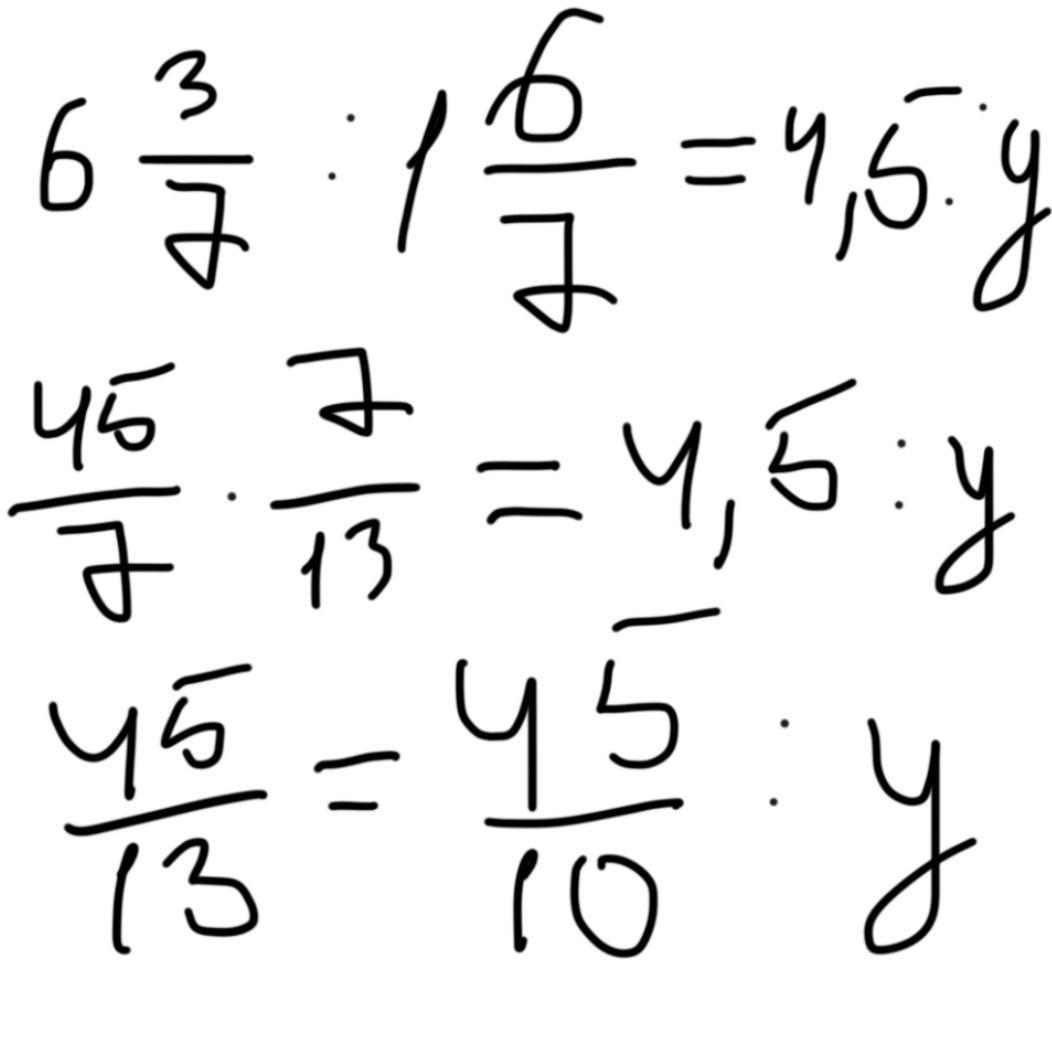 6 3/7 : 1 6/7 = 4,5 : y
45/7 · 7/13 = 4,5 : y
45/13 = 45/10 : y